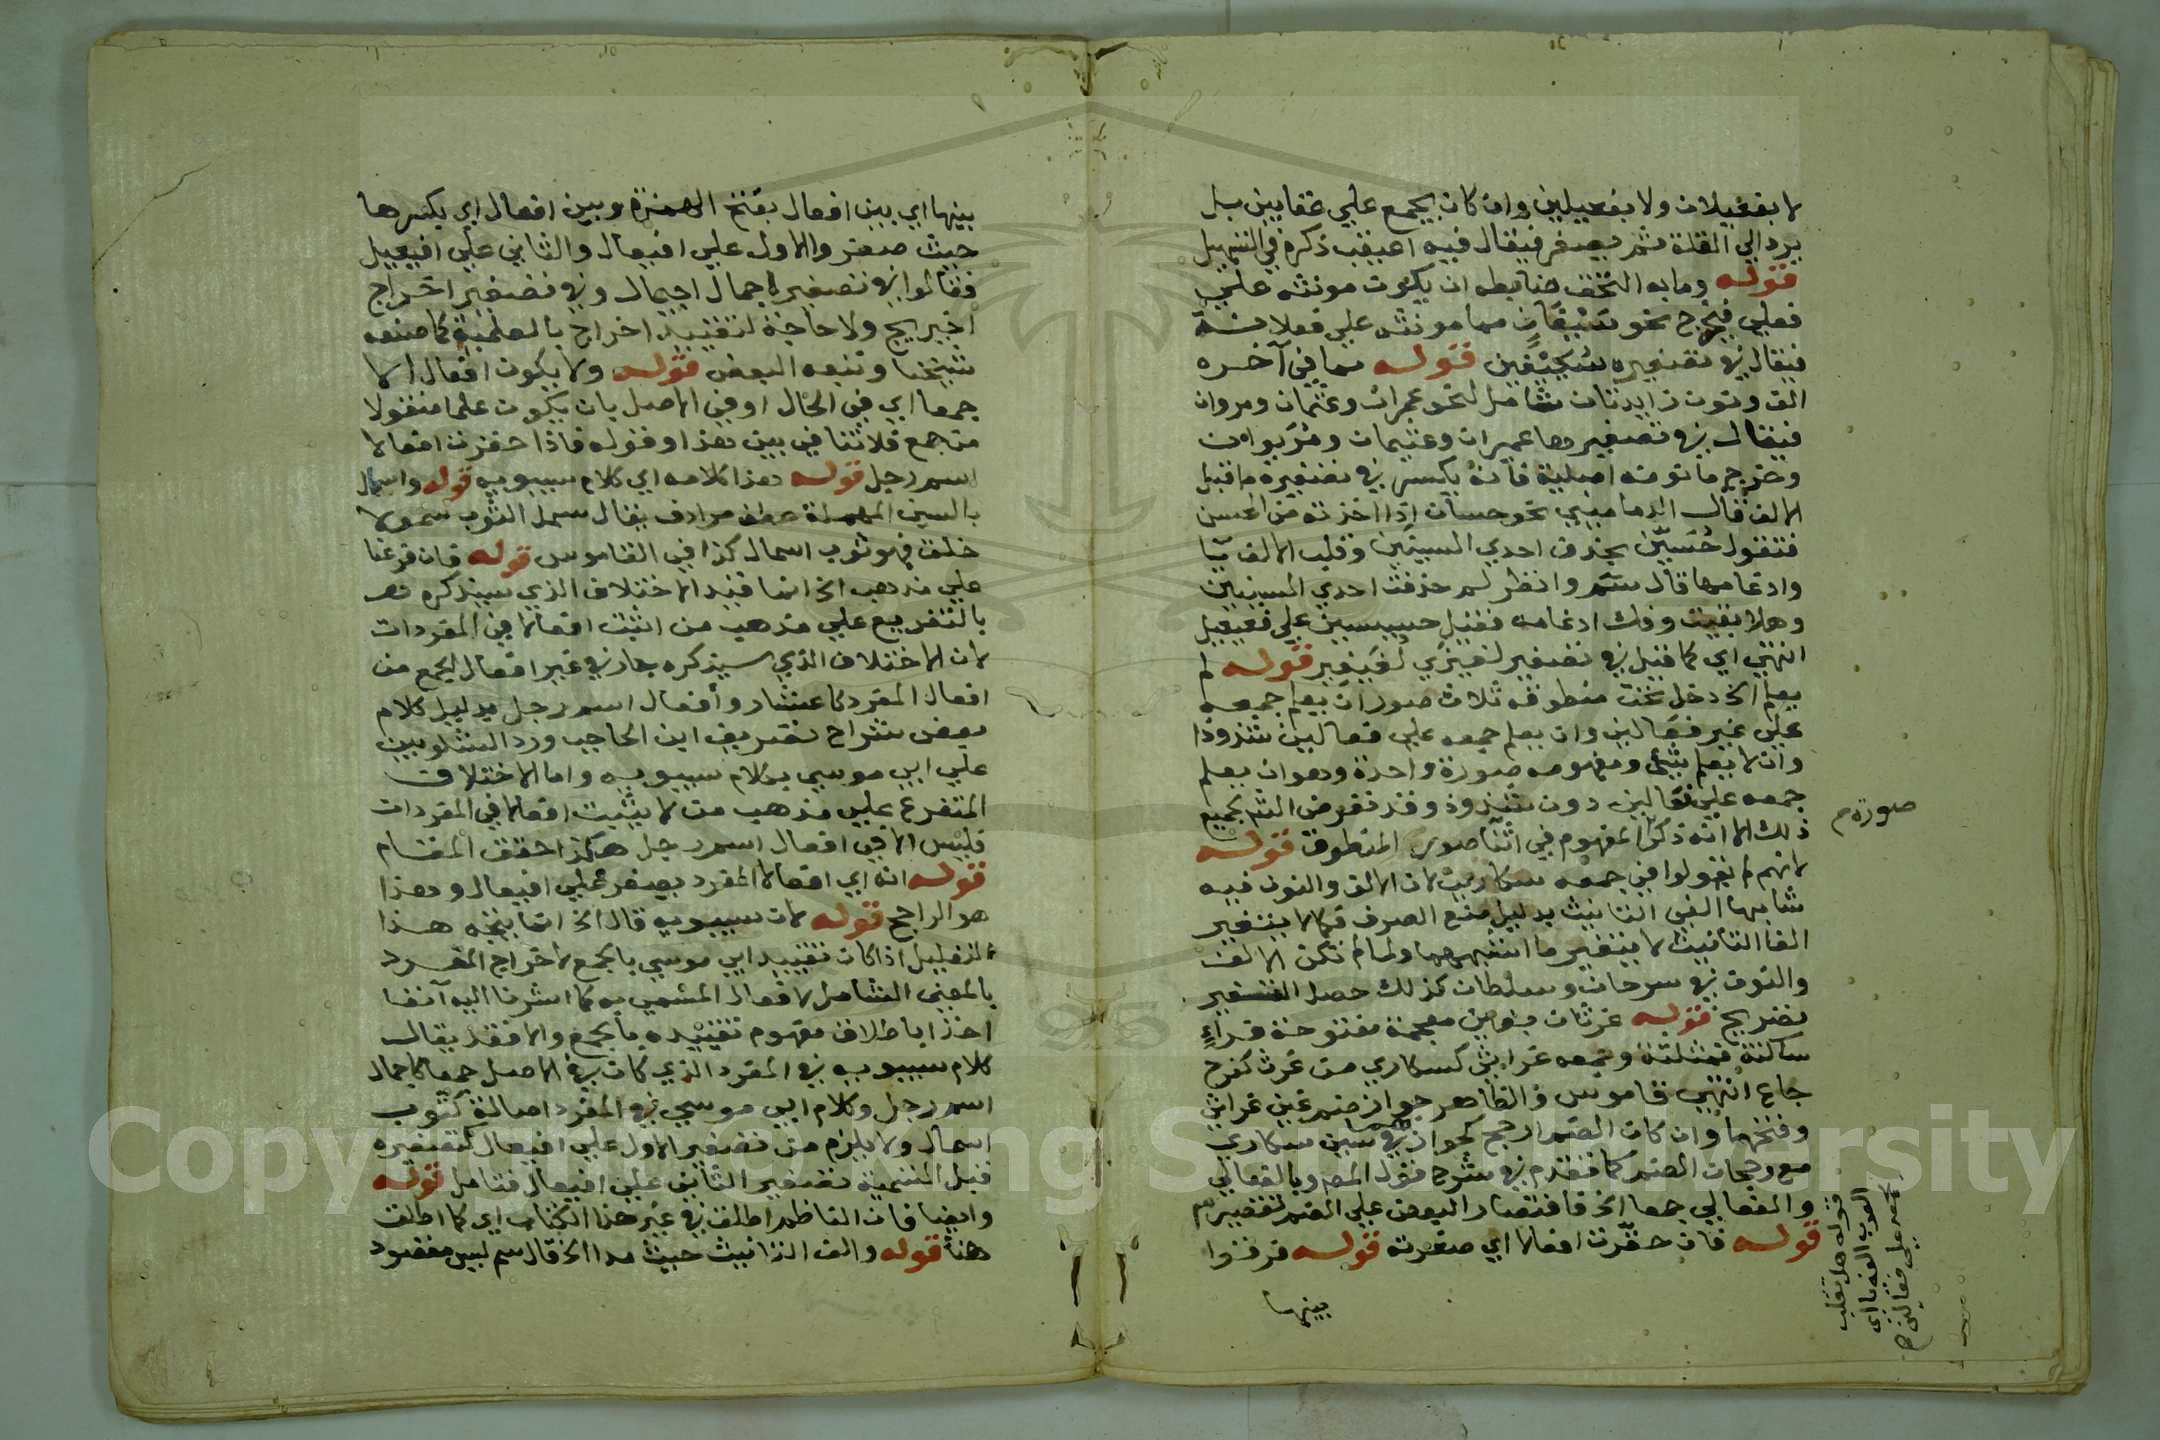 لا بفعيلان ولا بفعيلين وان كان يجمع علي عقابين بل
يرد الي القلة ثم يصغر فيقال فيه اعيقب ذكره في التسهيل
قوله وما به التحق ضابطه ان يكون مونثه علي
فعلي فخرج نحو سيفان مما مونثه علي فعلانة
فيقال في تصغيره قوله مما في آخره
الف ونون زايدتان شامل لنحو عمران وعثمان ومروان
فيقال في تصغيرها عميران وعثيمان ومريوان
وخرج ما نونه اصلية فانه يكسر في تصغيره ما قبل
الالف قال الدماميني نحو حسان اذا اخذته من الحسن
فتقول حسين بحذف احدي السينين وقلب الالف يا
وادغامها قال سم وانظر لم حذفت احدي السينين
وهلا بقيت وفك ادغامه فقيل حسيسين علي فعيعيل
انتهي اي كما قيل في تصغير لغيزي لغيغيز قوله لم
يعلم الخ دخل تحت منطوقه ثلاث صور ان يعلم جمعه
علي غير فعالين وان يعلم جمعه علي فعالين شذوذا
وان لا يعلم شئ ومفهومه صورة واحدة وهو ان يعلم
جمعه علي فعالين دون شذوذ وقد تعرض الشم لجميع
ذلك الا انه ذكر المفهوم في اثنا صور المنطوق قوله
لانهم لم يقولوا في جمعه سكارين لان الالف والنون فيه
شابها الفي التانيث بدليل منع الصرف فكما لا يتغير
الفا التانيث لا يتغير ما اشبههما ولما لم تكن الالف
والنون في سرحان وسلطان كذلك حصل التغيير
تصريح قوله غرثان بغين معجمة مفتوحة فراء
ساكنة فمثلثة وجمعه غراثي كسكاري من غرث كفرح
جاع انتهي قاموس والظاهر جواز ضم غين غراثي
وفتحها وان كان الضم ارجح كجواز في سين سكاري
مع رجحان الضم كما تقدم في شرح قول المص وبالفعالي
والفعالي جمعا الخ فاقتصار البعض علي الضم تقصير م
قوله فان حقرت افعالا اي صغرته قوله فرقوا
بينهما
صورة م
قوله هل تقلب
العرب الفه يا اي
يجمعه علي فعالين ص
بينها اي بين افعال بفتح الهمزة وبين افعال اي بكسرها
حيث صغروا الاول علي افيعال والثاني علي افيعيل
فقالوا في تصغير اجمال اجيمال وفي تصغير اخراج
اخيريج ولا حاجة لتقييد اخراج بالعلمية كما صنعه
شيخنا وتبعه البعض قوله ولا يكون افعال الا
جمعا اي في الحال او في الاصل بان يكون علما منقولا
من جمع فلا تنافي بين هذا وقوله فاذا حقرت افعالا
اسم رجل قوله هذا كلامه اي كلام سيبويه قوله واسمال
بالسين المهملة عطف مرادف يقال سمل الثوب سمولا
خلق فهو ثوب اسمال كذا في القاموس قوله فان فرعنا
علي مذهب الخ انما قيد الاختلاف الذي سيذكره
بالتفريع علي مذهب من اثبت افعالا في المفردات
لان الاختلاف الذي سيذكره جار في غير افعال الجمع من
افعال المفرد كاعشار وأفعال اسم رجل بدليل كلام
بعض شراح تصريف ابن الحاجب ورد الشلوبين
علي ابي موسي بكلام سيبويه واما الاختلاف
المتفرع علي مذهب من لا يثبت افعالا في المفردات
فليس الا في افعال اسم رجل هكذا حقق المقام
قوله انه اي افعالا المفرد يصغر علي افيعال وهذا
هو الراجح قوله لان سيبويه قال الخ انما ينتجه هذا
التعليل اذا كان تقييد ابي موسي بالجمع لاخراج المفرد
بالمعني الشامل لافعال المسمي به كما اشرنا اليه آنفا
اخذا باطلاق مفهوم تقييده بالجمع والا فقد يقال
كلام سيبويه في المفرد الذي كان في الاصل جمعا كاجمال
اسم رجل وكلام ابي موسي في المفرد اصالة كثوب
اسمال ولا يلزم من تصغير الاول علي افيعال كتصغيره
قبل التسمية تصغير الثاني علي افيعال فتامل قوله
وايضا فان الناظم اطلق في غير هذا الكتاب اي كما اطلق
هنا قوله والف التانيث حيث مدا الخ قال سم ليس مقصود
Copyright © King Saud University